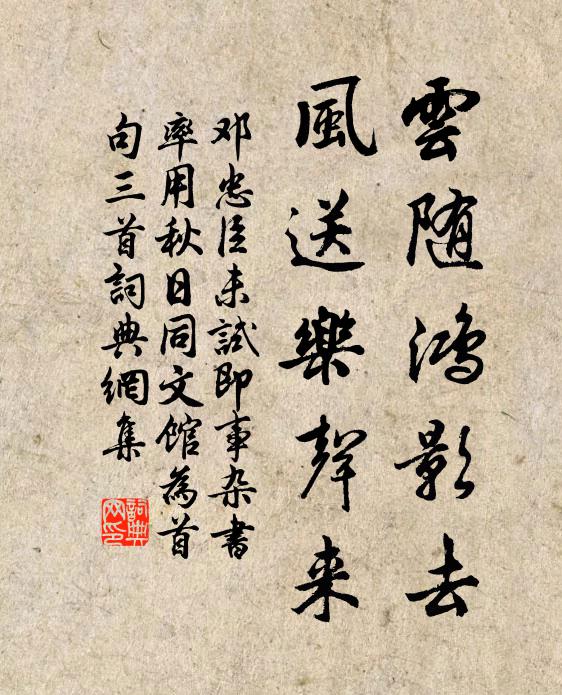 雲随鴻影去
風送樂聲来
邓忠臣未試即事杂書
率用秋日同文館為首
句三首詞典網集
詞典网印